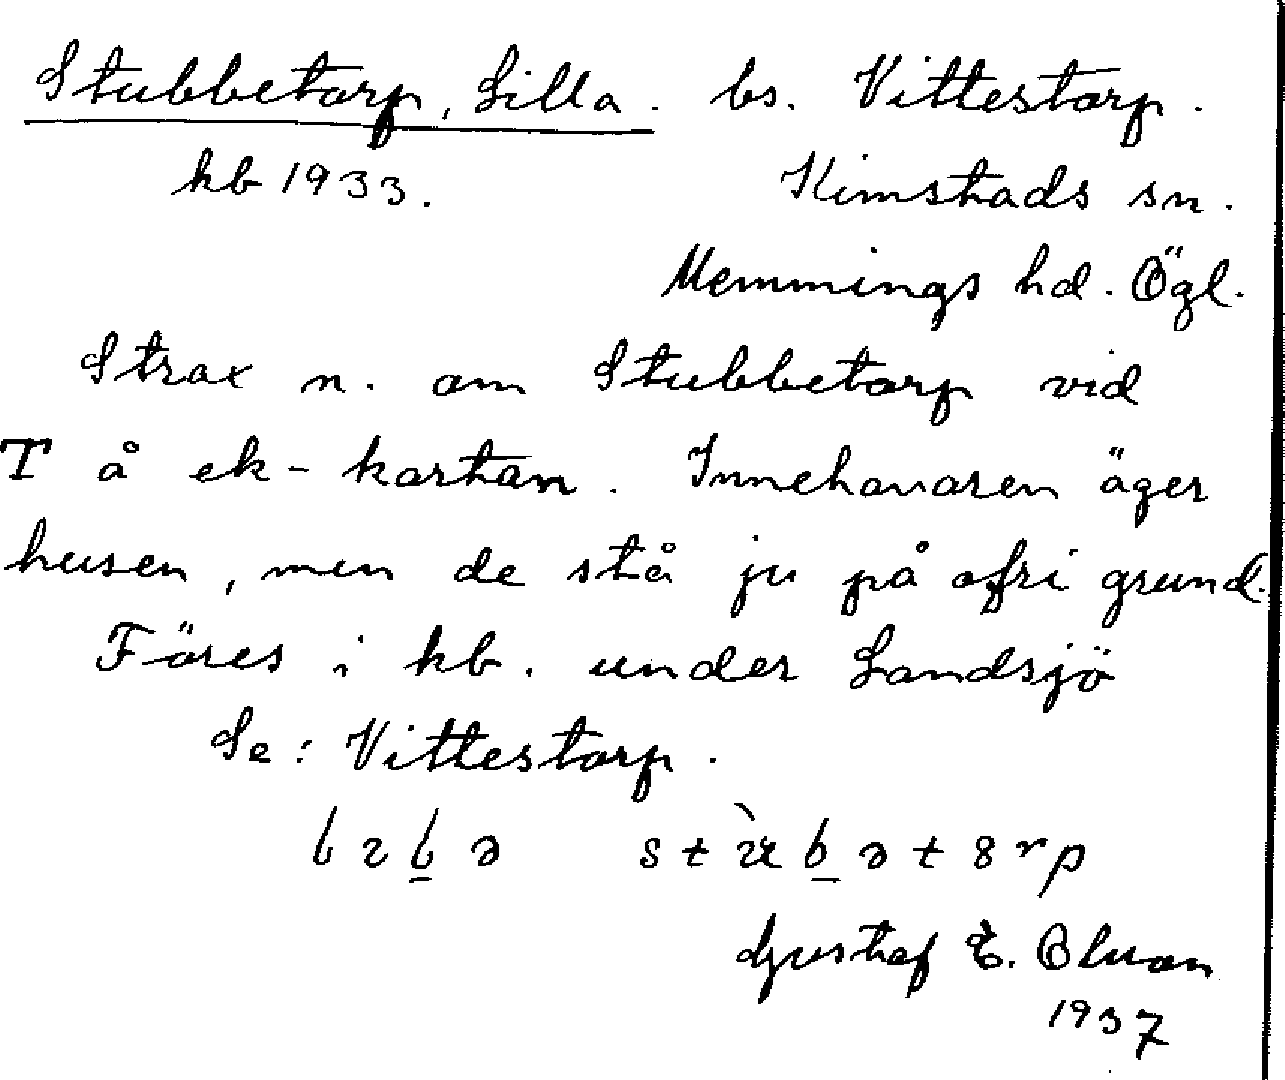 Stubbetorp, Lilla. bs. Vittestorp.
kb 1933. Kimstads sn.
Memmings hd. Ögl.
Strax n. om Stubbetorp vid
T å ek-kartan. Innehavaren äger
husen, men de stå ju på ofri grund.
Föres i kb. under Landsjö
Se: Vittestorp.
Gustaf E.
1937